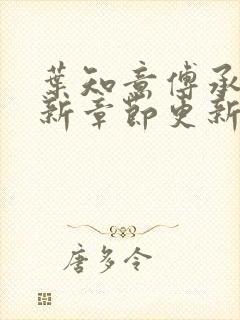 葉知意傅承
新章節更新
唐多令